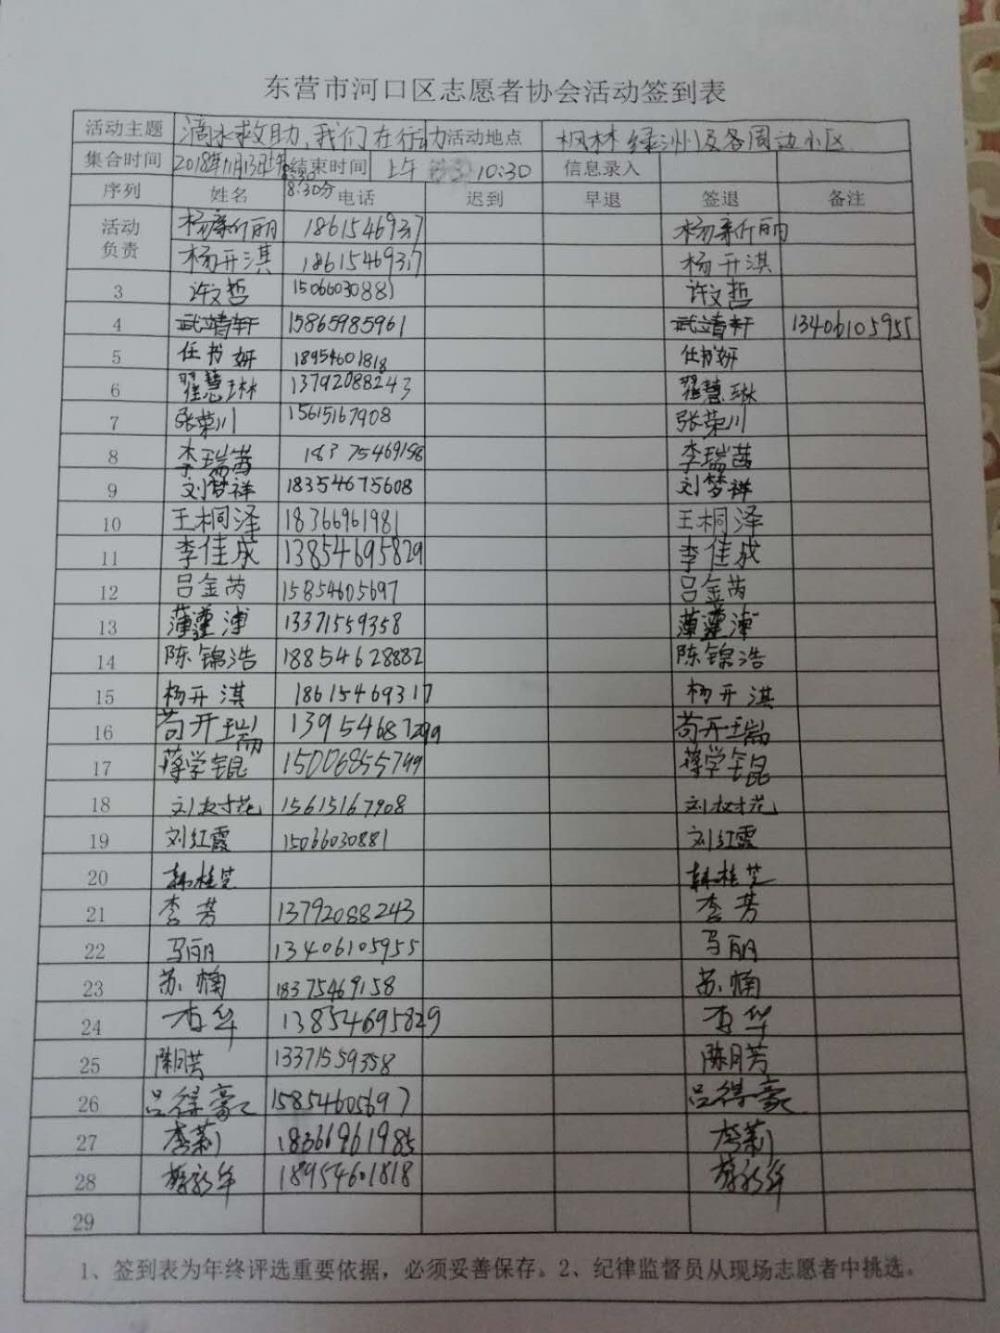 东营市河口区志愿者协会活动签到表
活动主题 滴水救助,我们在行动 活动地点 枫林绿洲及各周边小区
集合时间 2018年11月13日上午8:30 结束时间 上午 10:30 信息录入
8:30分
序列 姓名 电话 迟到 早退 签退 备注
活动负责 杨新丽 1861546937 杨新丽
杨开淇 1861546937 杨开淇
3 许文哲 15066030881 许文哲
4 武靖轩 15865985961 武靖轩 13406105955
5 任书妍 18954601818 任书妍
6 翟慧琳 13792088243 翟慧琳
7 张荣川 15615167908 张荣川
8 李瑞茜 18375469158 李瑞茜
9 刘梦祥 18354675608 刘梦祥
10 王桐泽 18366961981 王桐泽
11 李佳成 13854695829 李佳成
12 吕金芮 15854605697 吕金芮
13 薄 13371559358 薄
14 陈锦浩 18854628882 陈锦浩
15 杨开淇 18615469317 杨开淇
16 苟开瑞 13954687299 苟开瑞
17 蒋学锟 15006855799 蒋学锟
18 刘放花 15615167908 刘放花
19 刘红霞 15066030881 刘红霞
20 韩桂芝 韩桂芝
21 李芳 13792088243 李芳
22 马丽 13406105955 马丽
23 苏楠 18375469158 苏楠
24 杏华 13854695829 杏华
25 陈月芳 13371559358 陈月芳
26 吕得豪 15854605697 吕得豪
27 李莉 18366961985 李莉
28 蔡新年 18954601818 蔡新年
29
1、签到表为年终评选重要依据，必须妥善保存。2、纪律监督员从现场志愿者中挑选。